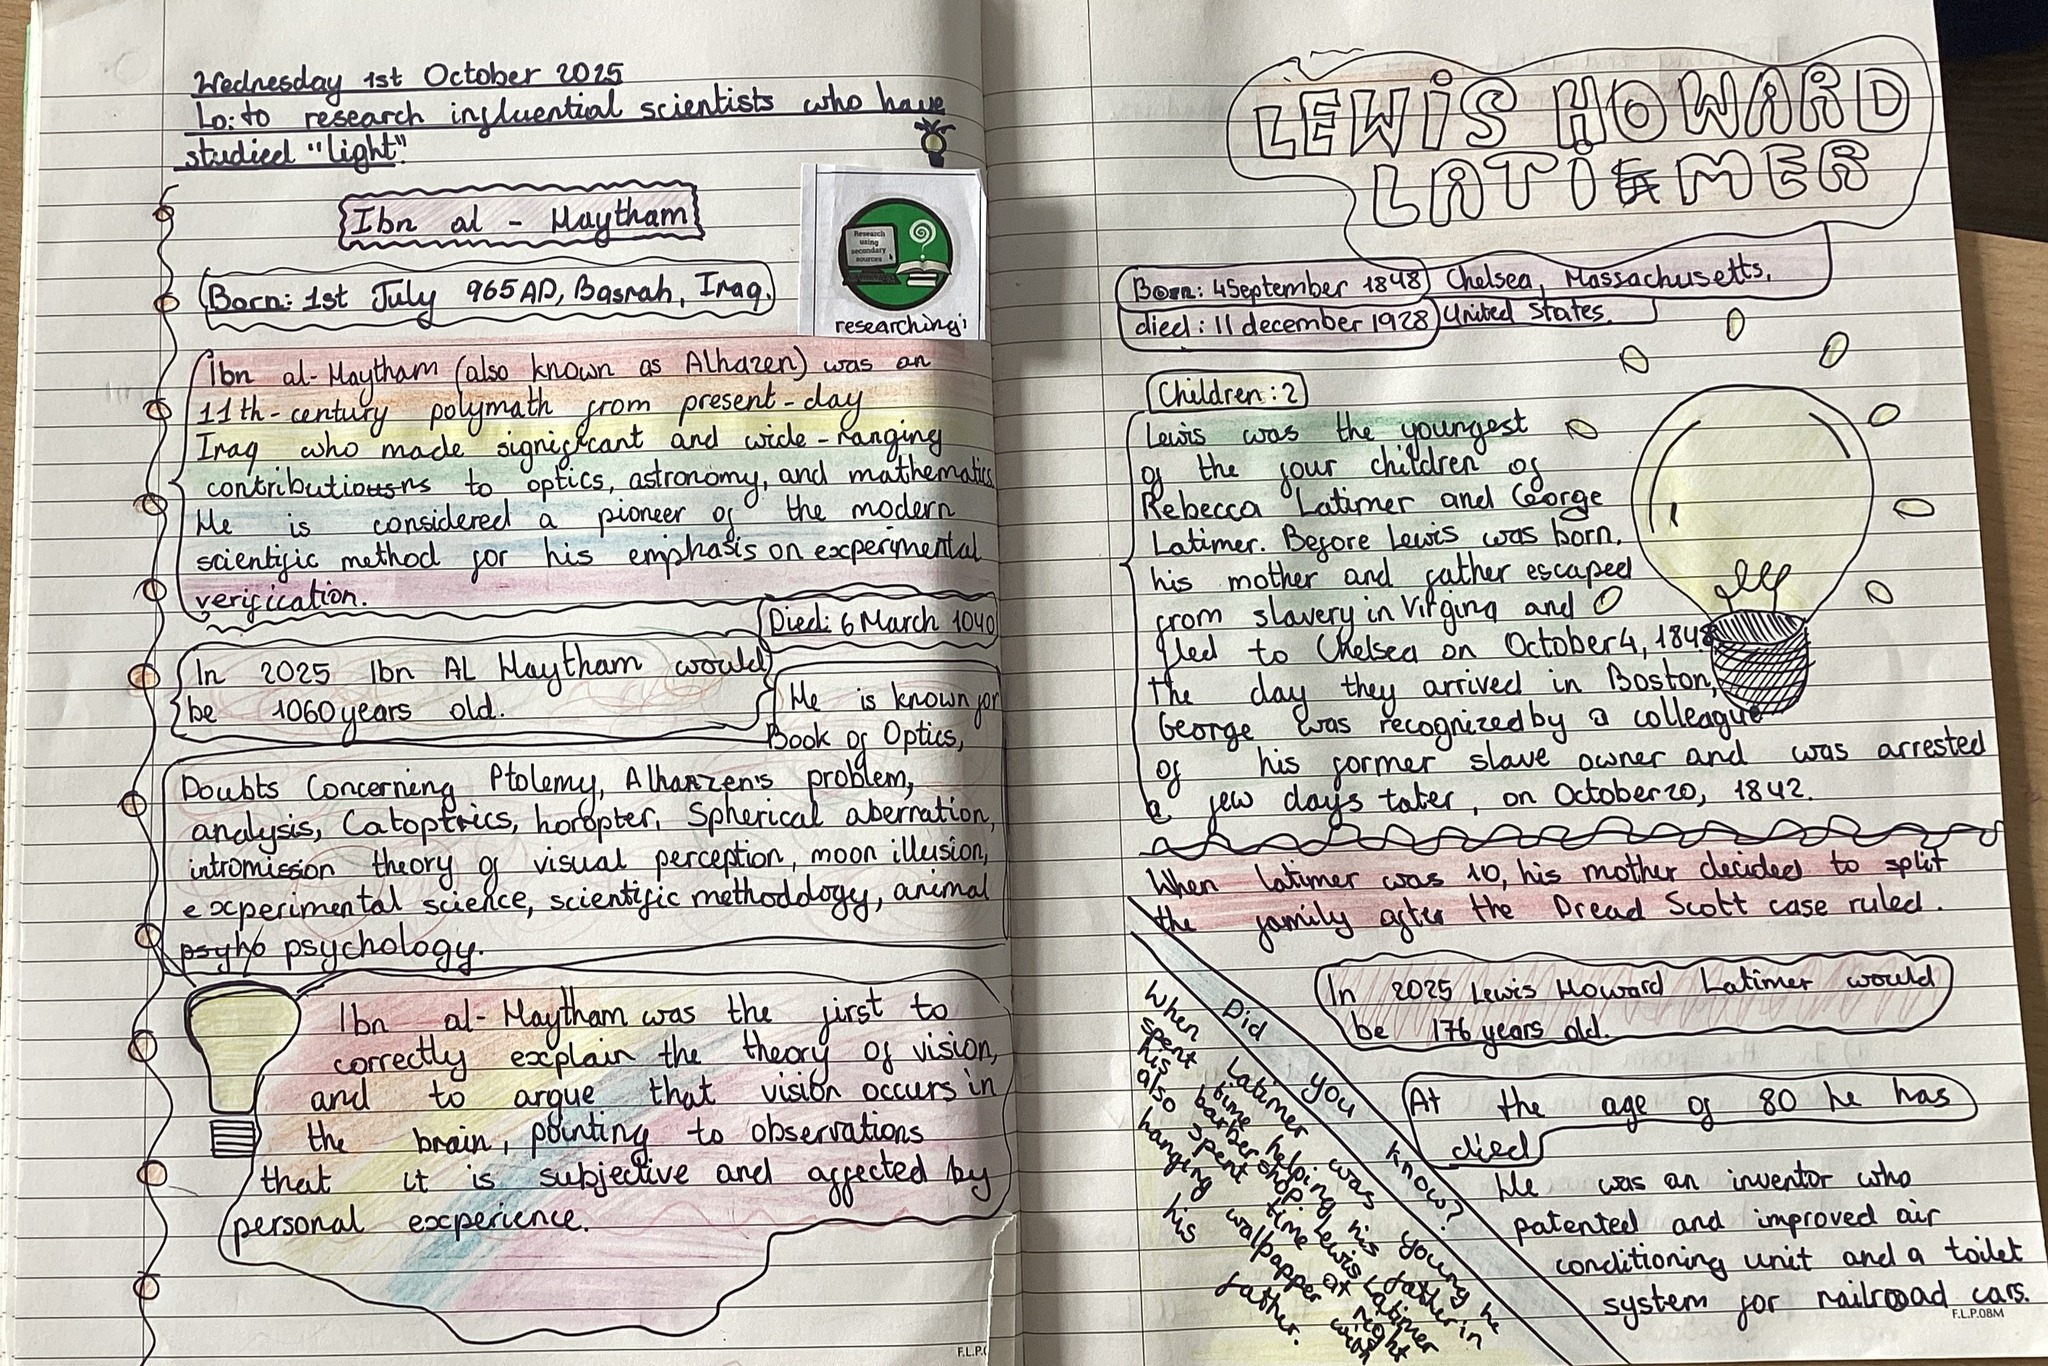 Wednesday 1st October 2025
Lo: to research influential scientists who have
studied "light"
Ibn al - Haytham
Research
using
secondary
sources
researching
Born: 1st July 965AD, Basrah, Iraq.
Ibn al-Haytham (also known as Alhazen) was an
11th-century polymath from present-day
Iraq who made significant and wide-ranging
contributions to optics, astronomy, and mathematics.
He is considered a pioneer of the modern
scientific method for his emphasis on experimental
verification.
Died: 6 March 1040
In 2025 Ibn AL Haytham would
be 1060 years old.
He is known for
Book of Optics,
Doubts Concerning Ptolemy, Alhazen's problem,
analysis, Catoptrics, horopter, Spherical aberration,
intromission theory of visual perception, moon illusion,
experimental science, scientific methodology, animal
psyho psychology.
Ibn al-Haytham was the first to
correctly explain the theory of vision,
and to argue that vision occurs in
the brain, pointing to observations
that it is subjective and affected by
personal experience.
F.L.P.
LEWIS HOWARD
LATIMER
Born: 4 September 1848 Chelsea, Massachusetts,
died: 11 december 1928 United States.
Children: 2
Lewis was the youngest
of the four children of
Rebecca Latimer and George
Latimer. Before Lewis was born,
his mother and father escaped
from slavery in Virgina and
fled to Chelsea on October 4, 1848
the day they arrived in Boston,
George was recognized by a colleague
of his former slave owner and was arrested
a few days tater, on October 20, 1842.
When latimer was 10, his mother decided to split
the family after the Dread Scott case ruled.
In 2025 Lewis Howard Latimer would
be 176 years old.
Did you know?
When Latimer was young he
spent time helping his father in
his barber shop. Lewis Latimer
also spent time at night
hanging walpapper with
his father.
At the age of 80 he has
died
He was an inventor who
patented and improved air
conditioning unit and a toilet
system for railroad cars.
F.L.P.08M